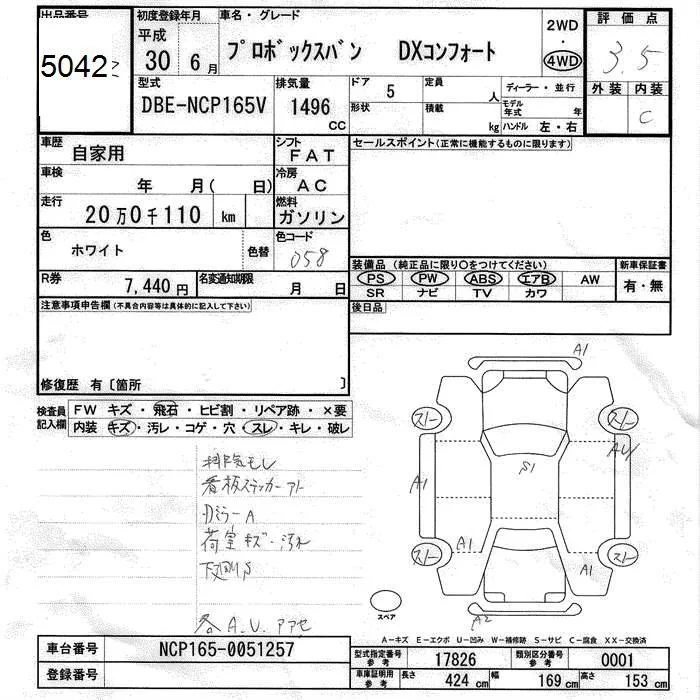 出品番号 初度登録年月 車名・グレード 2WD・4WD 評価点
5042 平成 30 6月 プロボックスバン DXコンフォート 3.5
型式 排気量 ドア 5 定員 人 ディーラー・並行 外装 内装
DBE-NCP165V 1496 CC 形状 積載 kg モデル年式 年 C
ハンドル 左・右
車歴 自家用 シフト FAT セールスポイント(正常に機能するものに限ります)
車検 年 月( 日) 冷房 AC
走行 20万0千110 km 燃料 ガソリン
色 ホワイト 色替 色コード 058
装備品(純正品に限り〇をつけてください) 新車保証書
R券 7,440円 名変通知期限 月 日 PS PW ABS エアB AW 有・無
SR ナビ TV カワ
注意事項申告欄(不具合内容等は具体的に記入して下さい) 後日品
修復歴 有〔箇所 〕
検査員記入欄 FW キズ・飛石・ヒビ割・リペア跡・×要
内装 キズ・汚レ・コゲ・穴・スレ・キレ・破レ
排気モレ
看板ステッカーアト
DミラーA
荷室キズ・汚れ
下廻りS
各A.U.アアセ
A1
スノー スノー
A1 S1 AU
スノー A1 A1 スノー
スペア A2
A-キズ E-エクボ U-凹み W-補修跡 S-サビ C-腐食 XX-交換済
車台番号 NCP165-0051257 型式指定番号 参考 17826 類別区分番号 参考 0001
登録番号 車庫証明用 参考 長さ 424 cm 幅 169 cm 高さ 153 cm